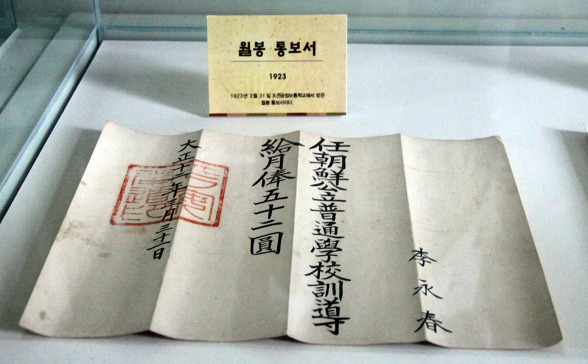 월봉 통보서
1923
1923년 3월 31일 조선공립보통학교에서 받은
월봉 통보서이다.
李永春
任朝鮮公立普通學校訓導
給月俸五十二圓
大正十二年三月三十一日